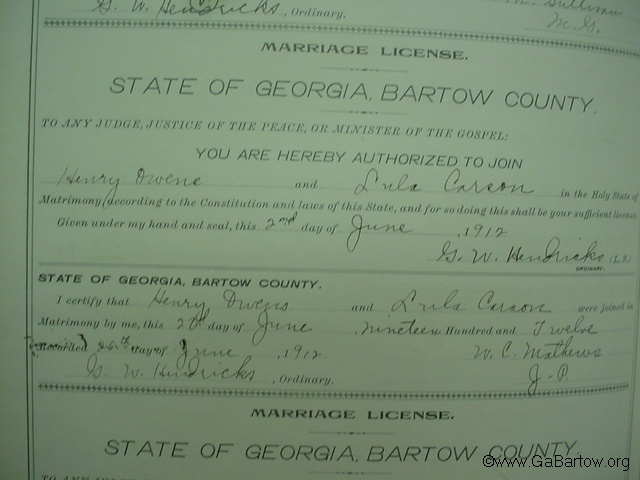 G. W. Hendricks, Ordinary.
M. G.
MARRIAGE LICENSE.
STATE OF GEORGIA, BARTOW COUNTY.
TO ANY JUDGE, JUSTICE OF THE PEACE, OR MINISTER OF THE GOSPEL:
YOU ARE HEREBY AUTHORIZED TO JOIN
Henry Owens and Lula Carson in the Holy State of
Matrimony, according to the Constitution and laws of this State, and for so doing this shall be your sufficient license.
Given under my hand and seal, this 2nd day of June, 1912
G. W. Hendricks (L.S.)
ORDINARY.
STATE OF GEORGIA, BARTOW COUNTY.
I certify that Henry Owens and Lula Carson were joined in
Matrimony by me, this 2d day of June, nineteen Hundred and Twelve
Recorded day of June, 1912 W. C. Mathews
G. W. Hendricks, Ordinary. J. P.
MARRIAGE LICENSE.
STATE OF GEORGIA, BARTOW COUNTY.
©www.GaBartow.org